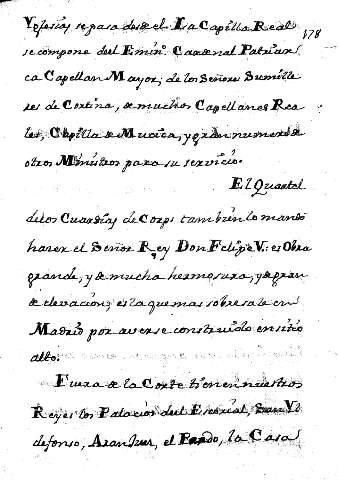 Yglesias se pasa desde el. La Capilla Real
178
se compone del Emin.º Cardenal Patriar
ca Capellan Mayor; de los Señores Sumille
res de Cortina, de muchos Capellanes Rea
les, Capilla de Musica, y gran numero de
otros Ministros para su servicio.
El Quartel
de los Guardias de Corps tambien lo mandó
hacer el Señor Rey Don Felipe V: es Obra
grande, y de mucha hermosura, y de gran
de elevacion; es la que mas sobresale en
Madrid por averse construido en sitio
alto.
Fuera de la Corte tienen nuestros
Reyes los Palacios del Escorial, San Yl
defonso, Aranjuez, el Pardo, la Casa